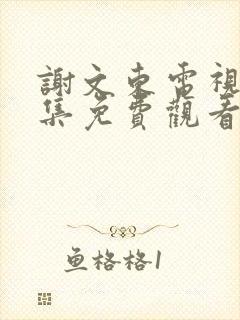 謝文東電視
集免費觀看
鱼格格1